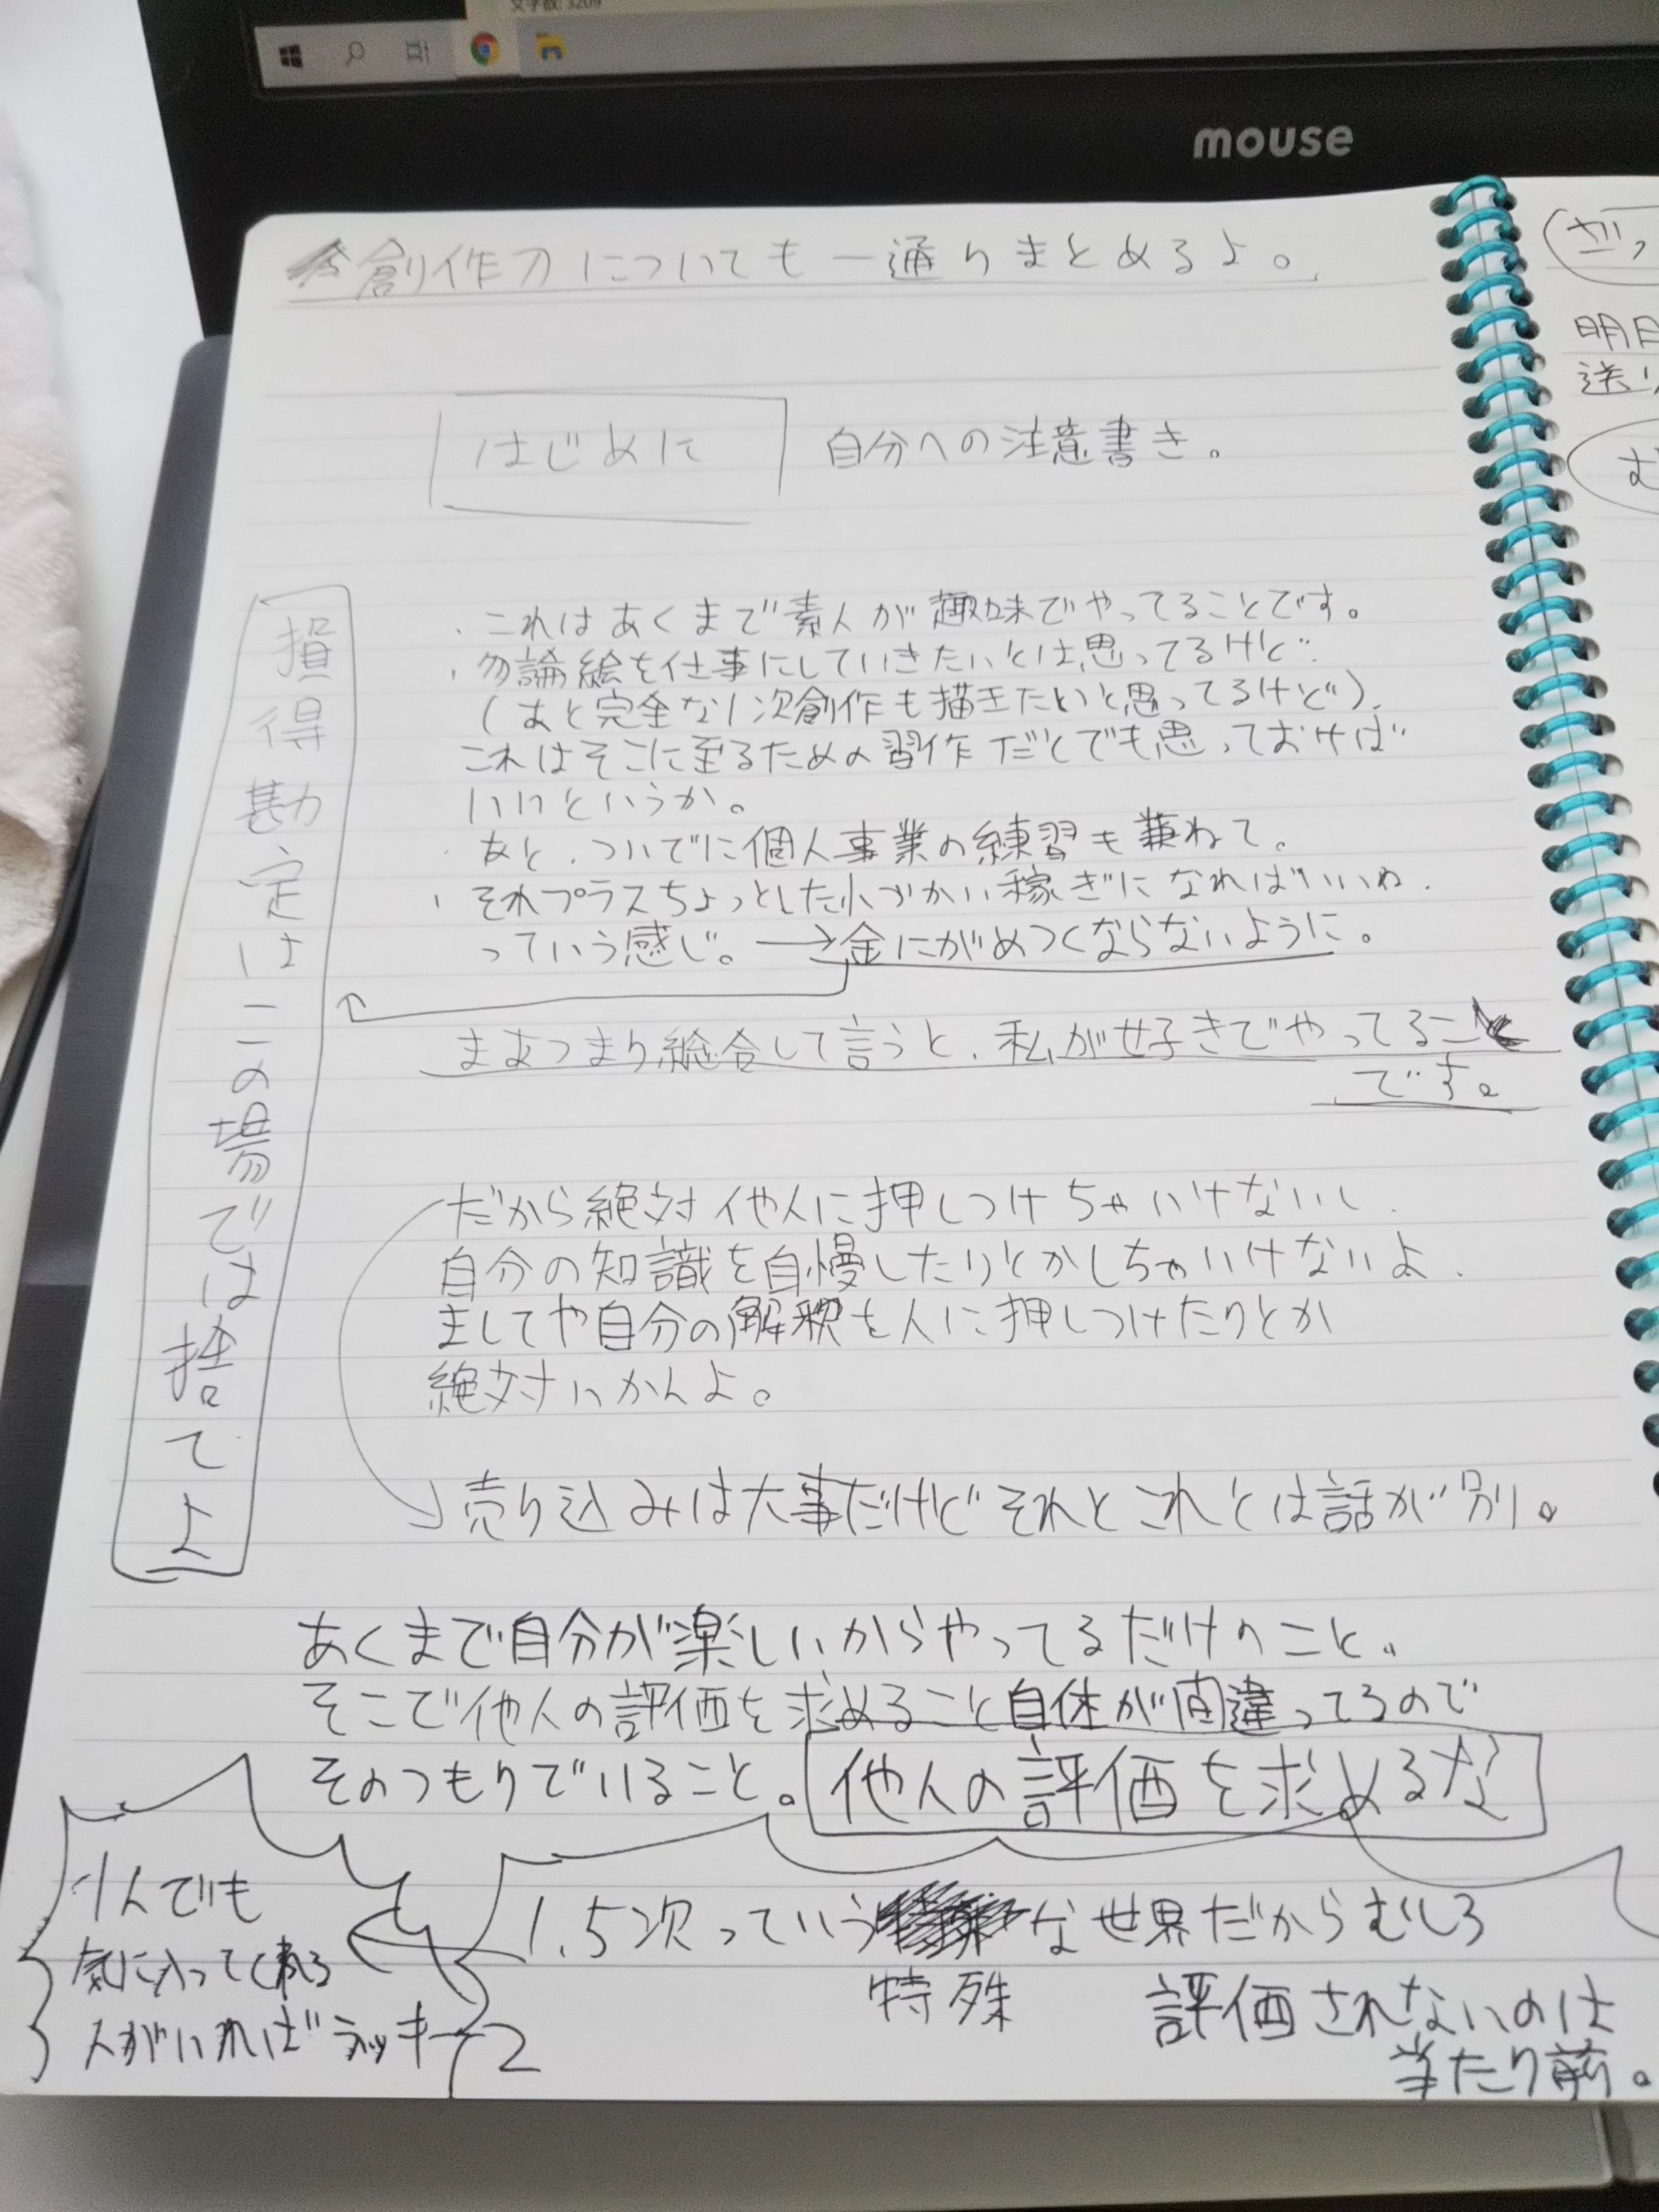 文字数: 3209
mouse
創作刀についても一通りまとめるよ。
はじめに
自分への注意書き。
・これはあくまで素人が趣味でやってることです。
・勿論絵を仕事にしていきたいとは思ってるけど
(あと完全な1次創作も描きたいと思ってるけど)、
これはそこに至るための習作だとでも思っておけば
いいというか。
・あと、ついでに個人事業の練習も兼ねて。
・それプラスちょっとした小づかい稼ぎになればいいね、
っていう感じ。→金にがめつくならないように。
損得勘定はこの場では捨てよ
まあつまり総合して言うと、私が好きでやってること
です。
だから絶対他人に押しつけちゃいけないし、
自分の知識を自慢したりとかしちゃいけないよ、
ましてや自分の解釈を人に押しつけたりとか
絶対いかんよ。
→売り込みは大事だけどそれとこれとは話が別。
あくまで自分が楽しいからやってるだけのこと、
そこで他人の評価を求めること自体が間違ってるので
そのつもりでいること。
他人の評価を求めるな
1.5次っていう な世界だからむしろ
特殊
評価されないのは
当たり前。
1人でも
気に入ってくれる
人がいればラッキー
明日
送り